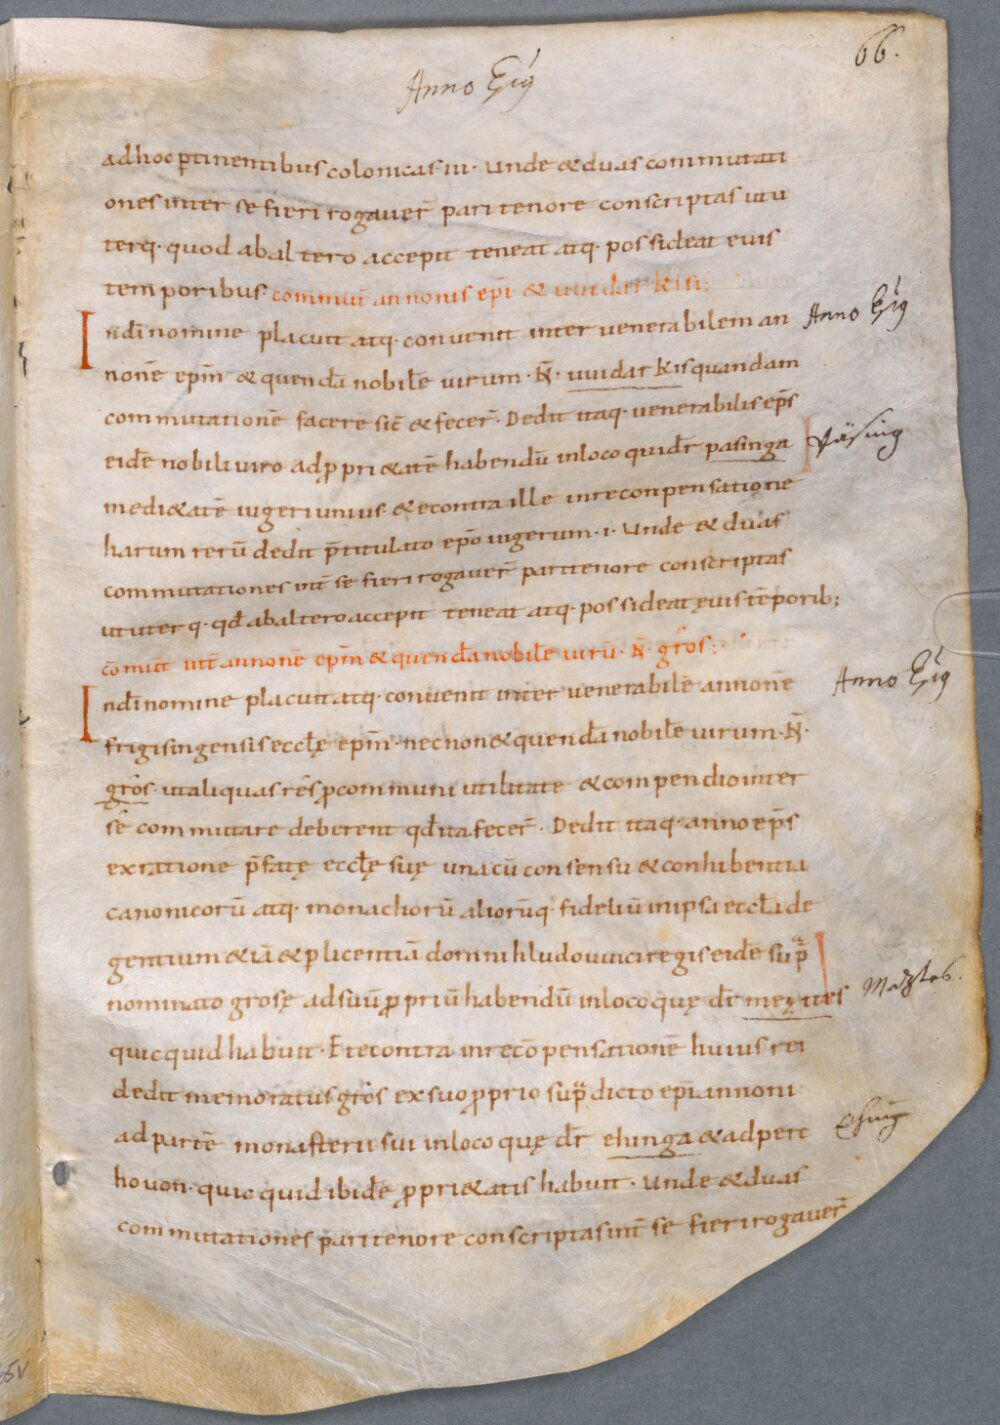 66.
Anno Epi9
adhoc p̄tinentibus colonicas · iii · unde & duas commutati
ones inter se fieri rogauer̄ pari tenore conscriptas utu
terq · quod abaltero accepit teneat atq · possideat euis
temporibus · commuī annonis ep̄i & uuidarkisi:
Indī nomine placuit atq · conuenit inter uenerabilem an
Anno Epi9
nonē ep̄m & quendā nobilē uirum · N̄ · uuidarkis quandam
commutationē facere sic̄ & fecer̄ · Dedit itaq · uenerabilis ep̄s
eidē nobili uiro ad ꝓpri&atē habendū inloco qui dr̄ pasinga
Päsing
medi&atē iugeri unius · & econtra ille inreconpensatione
harum rerū dedit p̄titulato ep̄o iugerum · i · unde & duas
commutationes int̄ se fieri rogauer̄ pari tenore conscriptas
ut uterq · qd̄ abaltero accepit teneat atq · possideat ęuis tēporib;
cōmut̄ int̄ annonē ep̄m & quendā nobilē uirū · N̄ · gros:
Indī nomine placuit atq · conuenit inter uenerabilē annonē
Anno Epi9
frigisingensis eccłę ep̄m · necnon & quendā nobilē uirum · N̄ ·
gros · utaliquas rēs ꝓcommuni utilitate & compendio inter
se commutare deberent qd̄ ita fecer̄ · Dedit itaq · anno ep̄s
exratione p̄fatę eccłę suę unacū consensu & conhibentia
canonicorū atq · monachorū aliorūq · fideliū inipsa eccła de
gentium & iā & p licentiā domni hludouuici regis eidē sup̄
nominato grosę adsuū ꝓpriū habendū inloco quę dr̄ mezites
quicquid habuit · Et econtra inrecōpensationē huius rei
dedit memoratus gros exsuo ꝓprio sup̄dicto ep̄i annoni
adpartē monasterii sui inloco quę dr̄ ehinga & adpert
Ehing
houon · quicquid ibidē ꝓpri&atis habuit · unde & duas
commutationes pari tenore conscriptas int̄ se fieri rogauer̄